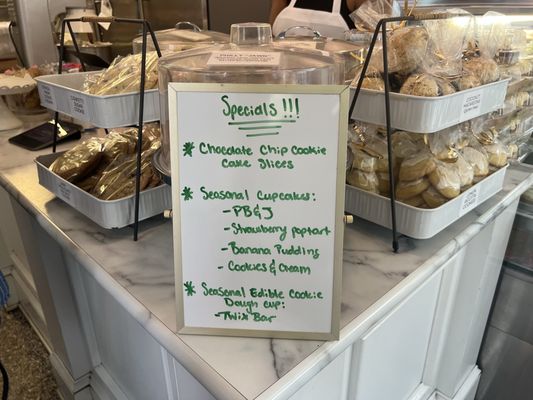 Specials !!!
* Chocolate Chip Cookie
Cake Slices
* Seasonal Cupcakes:
- PB&J
- Strawberry poptart
- Banana Pudding
- Cookies & Cream
* Seasonal Edible Cookie
Dough Cup:
- Twix Bar